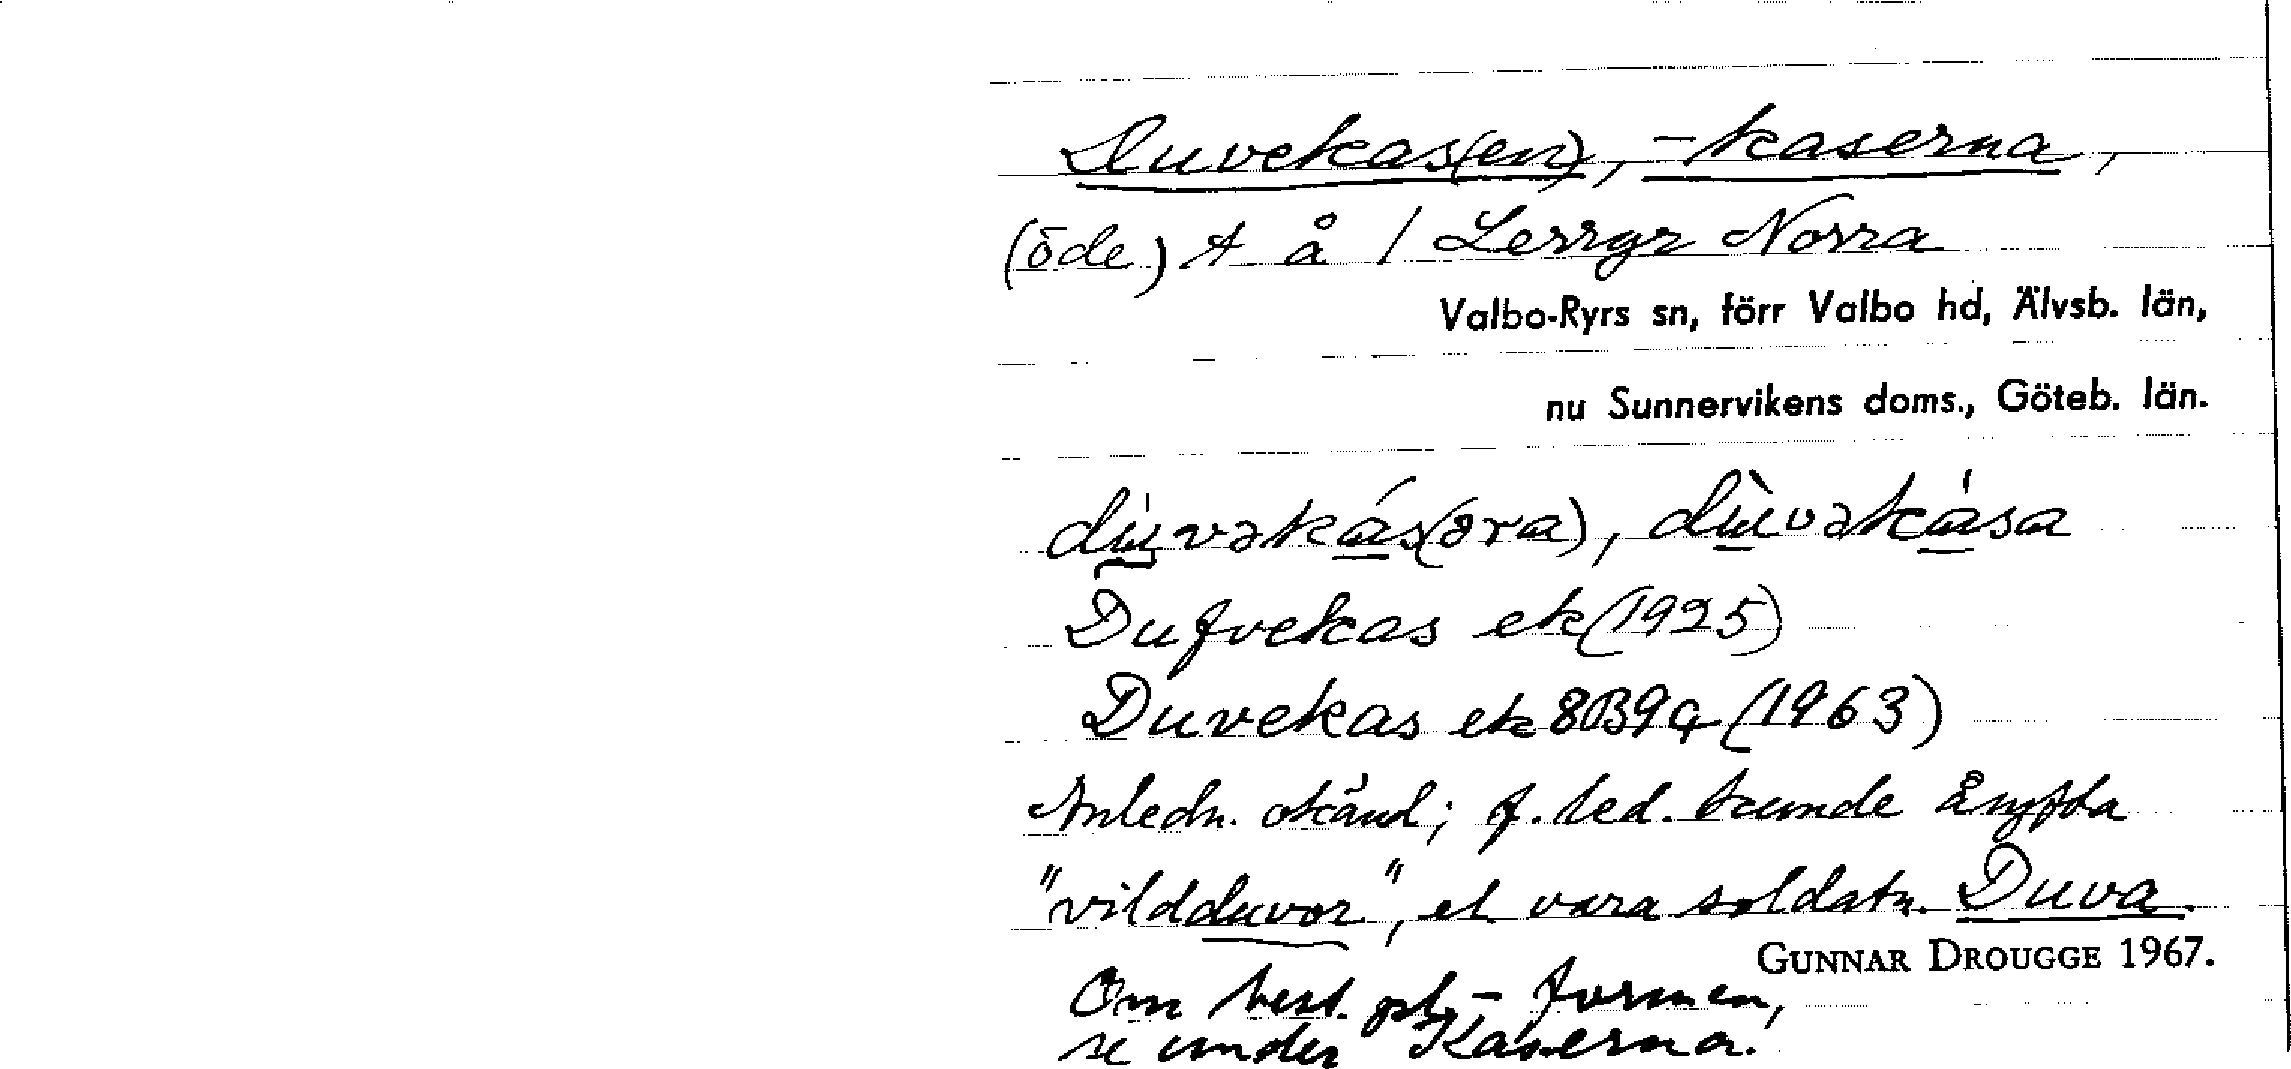 Duvekas(en), -kaserna,
(öde) t å / Lerryr Norra
Valbo-Ryrs sn, förr Valbo hd, Älvsb. län,
nu Sunnervikens doms., Göteb. län.
dùvəkás(əra), dùvəkása
Dufvekas ek (1925)
Duvekas ek 8B9a (1963)
Anledn. okänd; f. led. kunde åsyfta
"vildduvor", el vara soldatn. Duva.
GUNNAR DROUGGE 1967.
Om best. pl.-formen,
se under Kaserna.